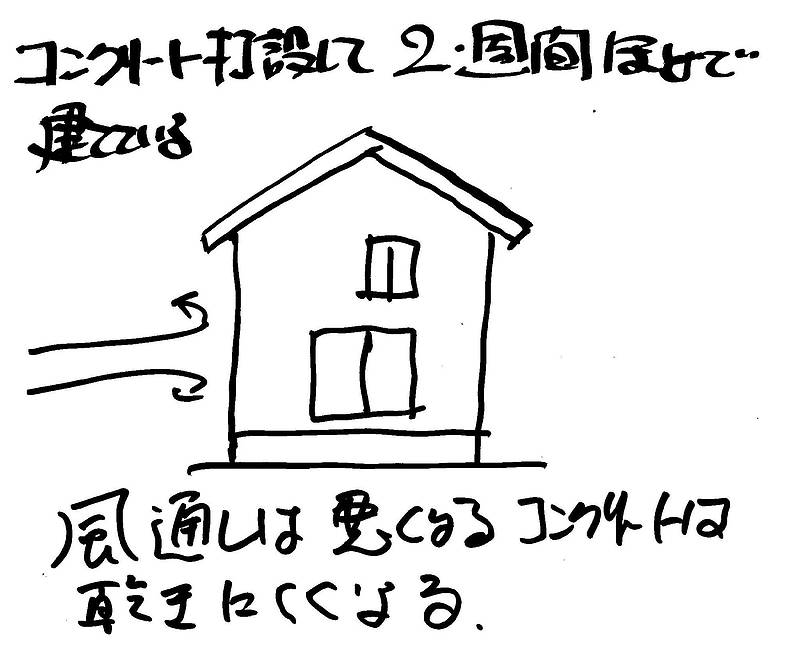 コンクリート打設して2週間ほどで
建てている
風通しは悪くなるコンクリートは
乾きにくくなる.